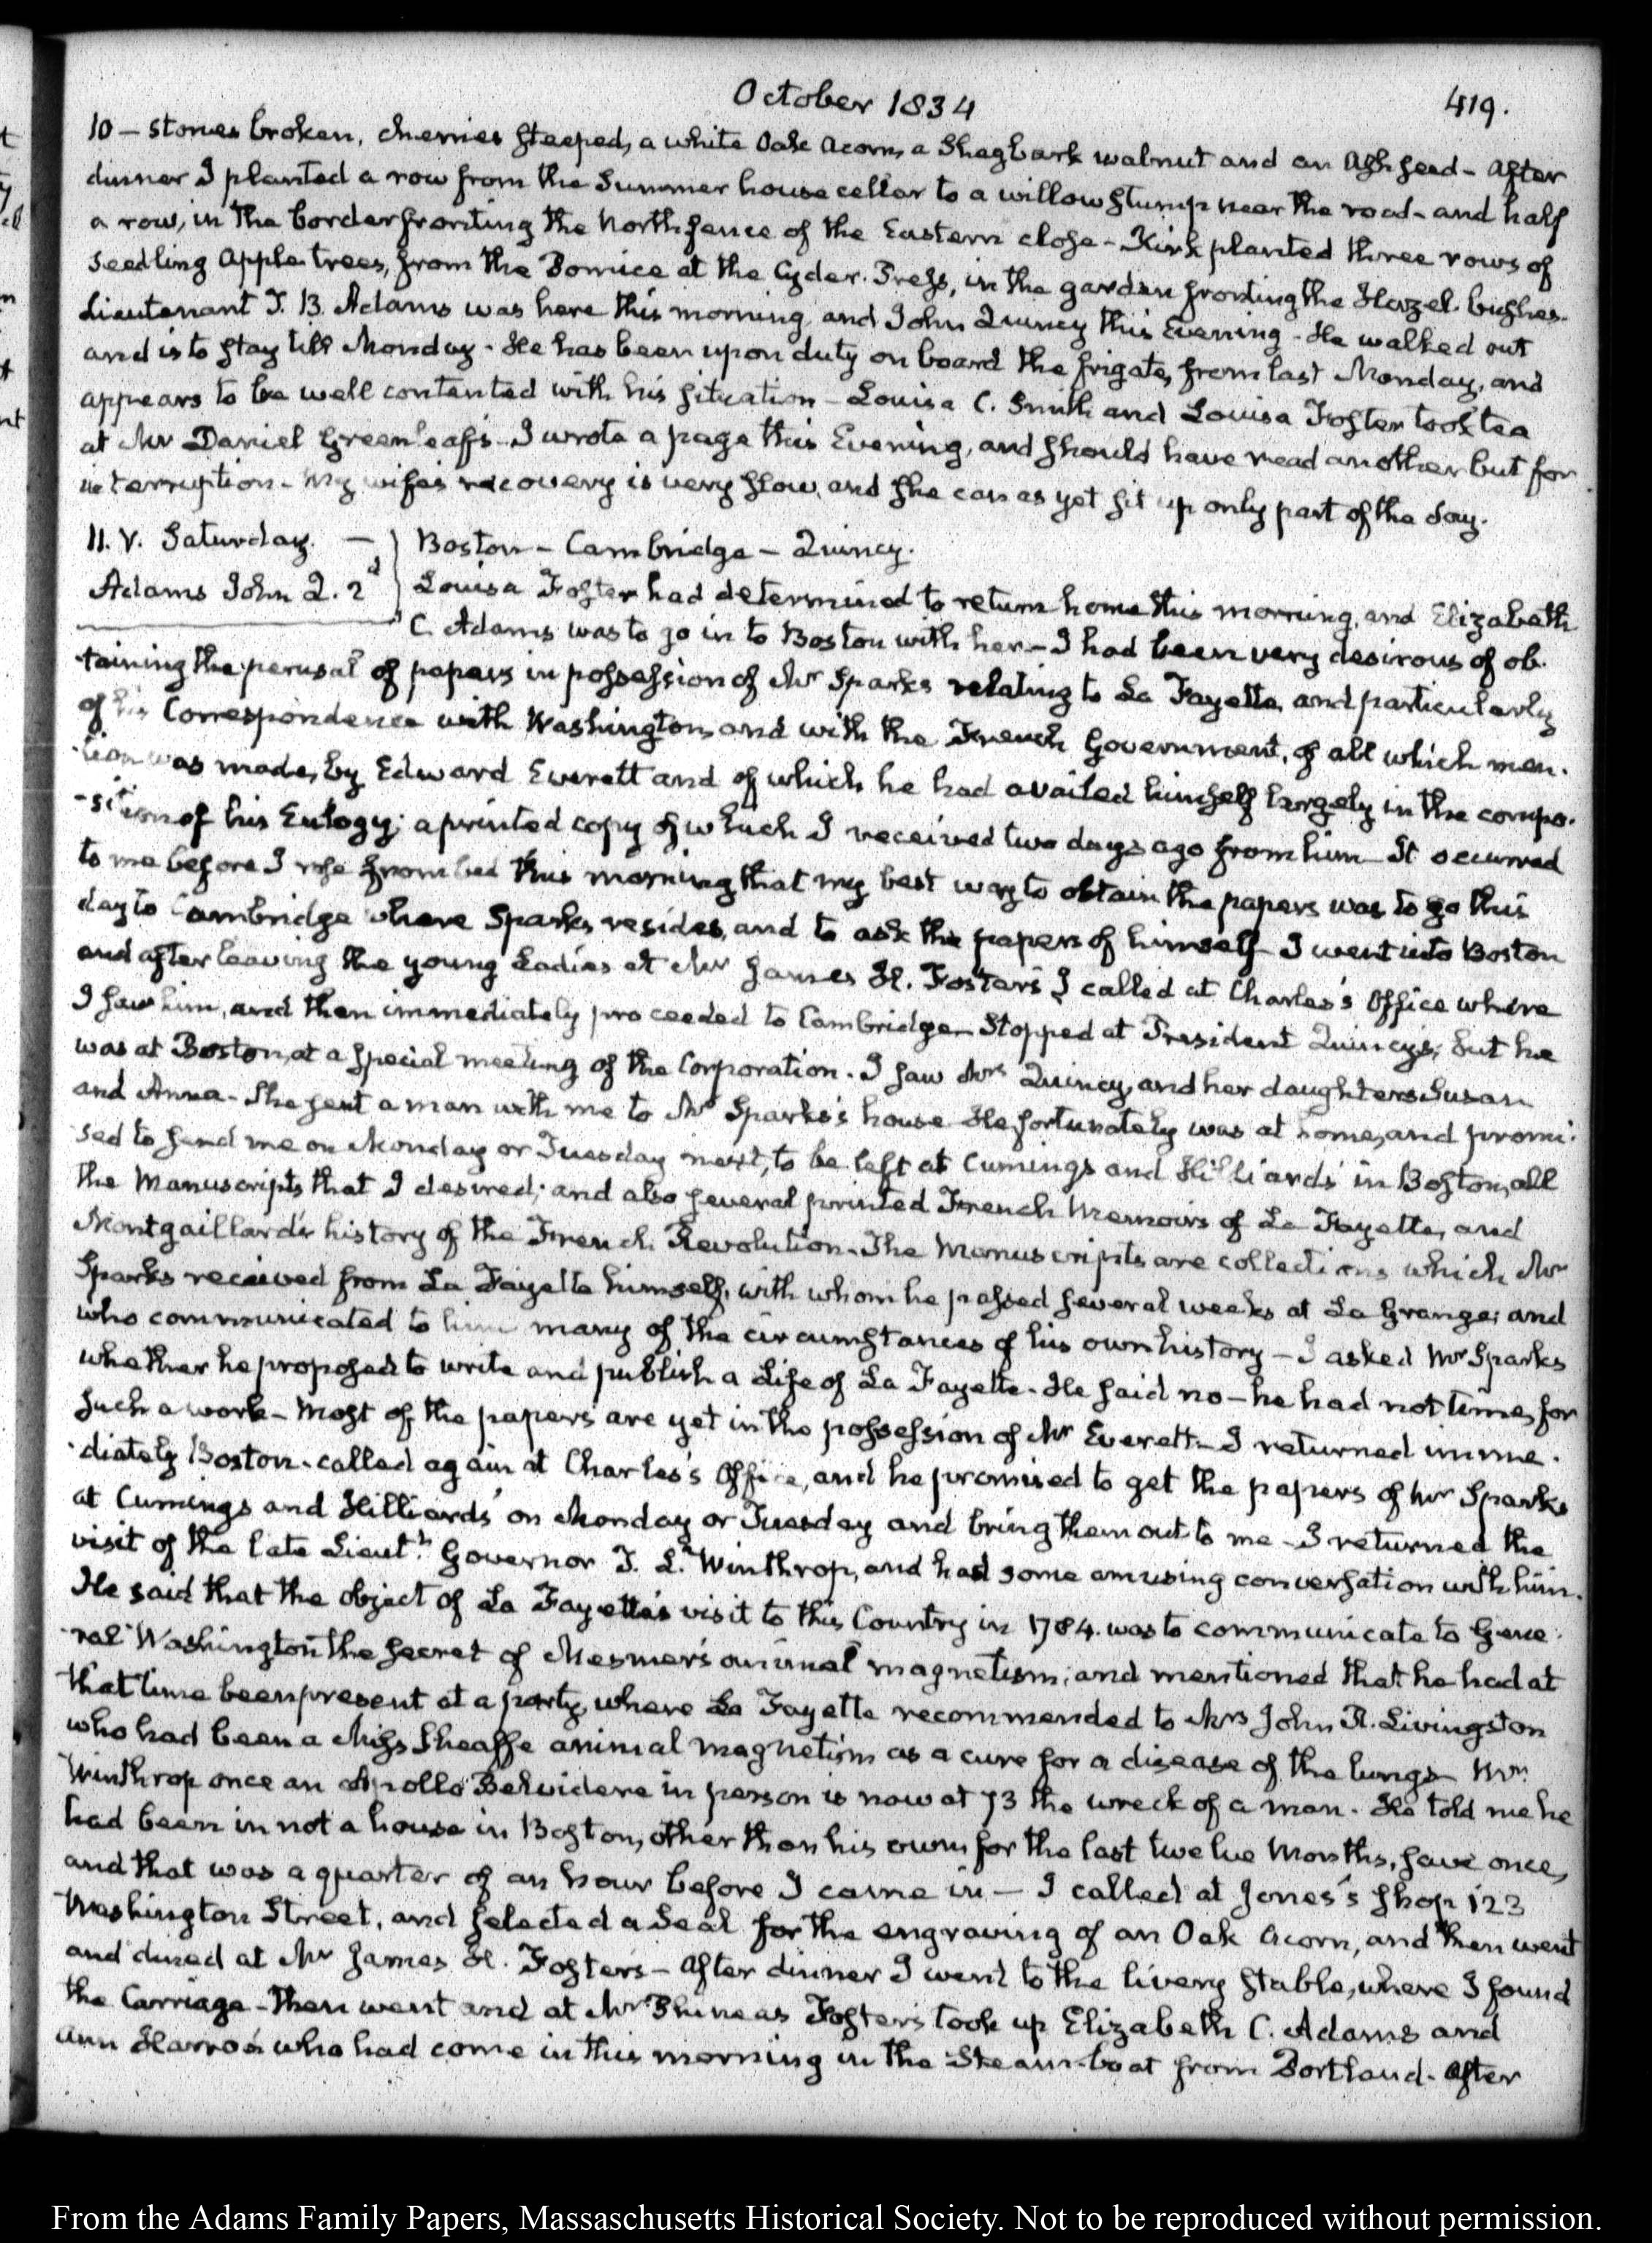 October 1834
419.
10 — stones broken, cherries steeped, a white Oak acorn, a Shagbark walnut and an Ash seed - After
dinner I planted a row from the Summer house cellar to a willow stump near the road - and half
a row, in the border fronting the North fence of the Eastern close - Kirk planted three rows of
seedling Apple trees, from the Pomice at the Cyder-Press, in the garden fronting the Hazel-bushes.
Lieutenant T. B. Adams was here this morning, and John Quincy this Evening - He walked out
and is to stay till Monday - He has been upon duty on board the frigate, from last Monday, and
appears to be well contented with his situation - Louisa C. Smith and Louisa Foster took tea
at Mr Daniel Greenleaf's - I wrote a page this Evening, and should have read another but for
interruption - My wife's recovery is very slow, and she can as yet sit up only part of the day.
11. V. Saturday. — Boston - Cambridge - Quincy.
Adams John Q. 2d Louisa Foster had determined to return home this morning, and Elizabeth
C. Adams was to go in to Boston with her - I had been very desirous of ob-
-taining the perusal of papers in possession of Mr Sparks relating to La Fayette, and particularly
of his Correspondence with Washington, and with the French Government, of all which men-
-tion was made, by Edward Everett and of which he had availed himself largely in the compo-
-sition of his Eulogy; a printed copy of which I received two days ago from him - It occurred
to me before I rose from bed this morning that my best way to obtain the papers was to go this
day to Cambridge where Sparks resides, and to ask the papers of himself - I went into Boston
and after leaving the young Ladies at Mr James H. Foster's I called at Charles's Office where
I saw him, and then immediately proceeded to Cambridge - Stopped at President Quincy's; but he
was at Boston, at a special meeting of the Corporation. I saw Mrs Quincy, and her daughters Susan
and Anna - She sent a man with me to Mr Sparks's house - He fortunately was at home, and promi-
sed to send me on Monday or Tuesday next, to be left at Cumings and Hilliards' in Boston, all
the Manuscripts that I desired; and also several printed French Memoirs of La Fayette, and
Montgaillard's history of the French Revolution - The Manuscripts are collections which Mr
Sparks received from La Fayette himself, with whom he passed several weeks at La Grange; and
who communicated to him many of the circumstances of his own history - I asked Mr Sparks
whether he proposed to write and publish a Life of La Fayette - He said no - he had not time, for
such a work - Most of the papers are yet in the possession of Mr Everett - I returned imme-
-diately Boston - called again at Charles's Office, and he promised to get the papers of Mr Sparks
at Cumings and Hilliards' on Monday or Tuesday and bring them out to me - I returned the
visit of the late Lieutt Governor T. L. Winthrop, and had some amusing conversation with him.
He said that the object of La Fayette's visit to this Country in 1784. was to communicate to Gene-
-ral Washington the secret of Mesmer's animal magnetism; and mentioned that he had at
that time been present at a party, where La Fayette recommended to Mrs John R. Livingston
who had been a Miss Sheaffe animal magnetism as a cure for a disease of the lungs - Mr
Winthrop once an Apollo Belvidere in person is now at 73 the wreck of a man. He told me he
had been in not a house in Boston, other than his own for the last twelve Months, save once,
and that was a quarter of an hour before I came in — I called at Jones's shop 123
Washington Street, and selected a Seal for the engraving of an Oak Acorn, and then went
and dined at Mr James H. Foster's - After dinner I went to the livery stable, where I found
the Carriage - Then went and at Mr Phineas Foster's took up Elizabeth C. Adams and
Ann Harrod who had come in this morning in the Steam-boat from Portland - After
From the Adams Family Papers, Massachusetts Historical Society. Not to be reproduced without permission.